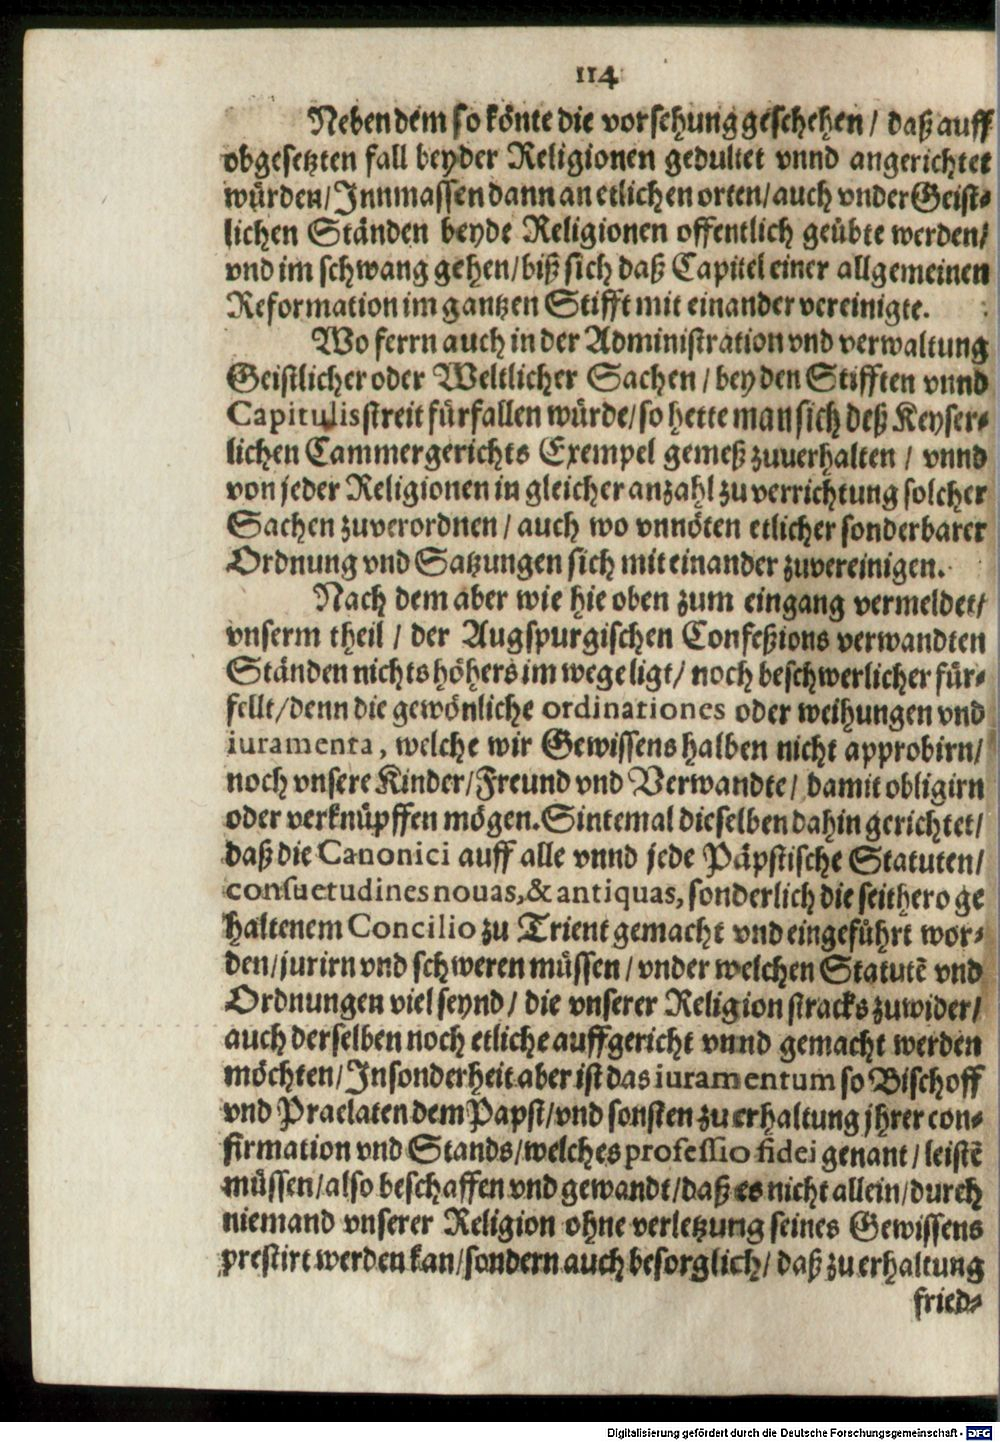 114
Neben dem so könte die vorsehung geschehen / daß auff
obgesetzten fall beyder Religionen gedultet vnnd angerichtet
würden / Innmassen dann an etlichen orten / auch vnder Geist-
lichen Ständen beyde Religionen offentlich geübte werden /
vnd im schwang gehen / biß sich daß Capitel einer allgemeinen
Reformation im gantzen Stifft mit einander vereinigte.
Wo ferrn auch in der Administration vnd verwaltung
Geistlicher oder Weltlicher Sachen / bey den Stifften vnnd
Capitulis streit fürfallen würde / so hette man sich deß Keyser-
lichen Cammergerichts Exempel gemeß zuuerhalten / vnnd
von jeder Religionen in gleicher anzahl zu verrichtung solcher
Sachen zuverordnen / auch wo vnnöten etlicher sonderbarer
Ordnung vnd Satzungen sich mit einander zuvereinigen.
Nach dem aber wie hie oben zum eingang vermeldet /
vnserm theil / der Augspurgischen Confeßions verwandten
Ständen nichts höhers im wege ligt / noch beschwerlicher für-
fellt / denn die gewönliche ordinationes oder weihungen vnd
iuramenta, welche wir Gewissens halben nicht approbirn /
noch vnsere Kinder / Freund vnd Verwandte / damit obligirn
oder verknüpffen mögen. Sintemal dieselben dahin gerichtet /
daß die Canonici auff alle vnnd jede Päpstische Statuten /
consuetudines nouas, & antiquas, sonderlich die seithero ge
haltenem Concilio zu Trient gemacht vnd eingeführt wor-
den / jurirn vnd schweren müssen / vnder welchen Statutē vnd
Ordnungen viel seynd / die vnserer Religion stracks zuwider /
auch derselben noch etliche auffgericht vnnd gemacht werden
möchten / Insonderheit aber ist das iuramentum so Bischoff
vnd Praelaten dem Papst / vnd sonsten zu erhaltung jhrer con-
firmation vnd Stands / welches professio fidei genant / leistē
müssen / also beschaffen vnd gewandt / daß es nicht allein / durch
niemand vnserer Religion ohne verletzung seines Gewissens
prestirt werden kan / sondern auch besorglich / daß zu erhaltung
fried-
Digitalisierung gefördert durch die Deutsche Forschungsgemeinschaft - DFG